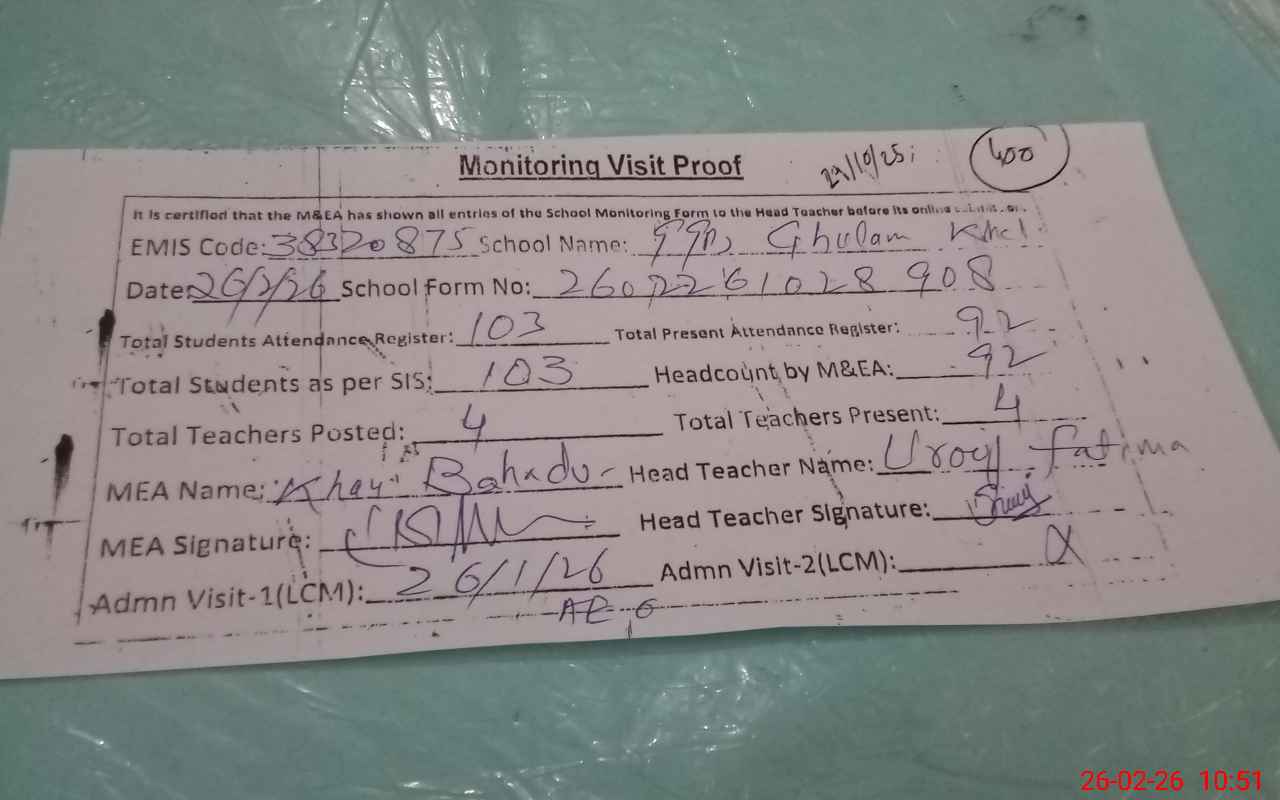 Monitoring Visit Proof 29/10/25 400
It is certified that the M&EA has shown all entries of the School Monitoring Form to the Head Teacher before its online
EMIS Code: 38320875 School Name: Ghulam Khel
Date: 26/2/26 School Form No:
Total Students Attendance Register: 103 Total Present Attendance Register: 92
Total Students as per SIS: 103 Headcount by M&EA: 92
Total Teachers Posted: 4 Total Teachers Present: 4
MEA Name: Bahadur Head Teacher Name: Fatima
MEA Signature: Head Teacher Signature:
Admn Visit-1(LCM): 26/1/26 Admn Visit-2(LCM):
26-02-26 10:51